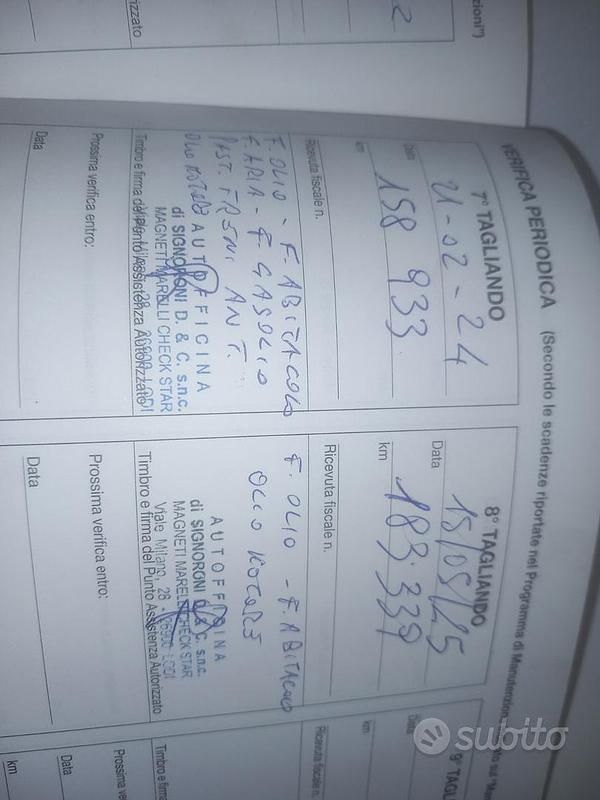 zioni")
2
rizzato
VERIFICA PERIODICA (Secondo le scadenze riportate nel Programma di Manutenzione
7° TAGLIANDO
Data 21-02-24
km 158 933
Ricevuta fiscale n.
F. OLIO - F. ABITACOLO
F. ARIA - F. GASOLIO
PAST. FRENI ANT.
OLIO MOTORE
AUTOFFICINA
di SIGNORONI D. & C. s.n.c.
MAGNETI MARELLI CHECK STAR
Viale Milano, 28 - 26900 LODI
Timbro e firma del Punto Assistenza Autorizzato
Prossima verifica entro:
Data
8° TAGLIANDO
Data 15/05/25
km 183.339
Ricevuta fiscale n.
F. OLIO - F. ABITACOLO
OLIO MOTORE
AUTOFFICINA
di SIGNORONI D. & C. s.n.c.
MAGNETI MARELLI CHECK STAR
Viale Milano, 28 - 26900 LODI
Timbro e firma del Punto Assistenza Autorizzato
Prossima verifica entro:
Data
9° TAGL
Data
km
Ricevuta fiscale n.
Timbro e firma
Prossima ve
Data
km
subito